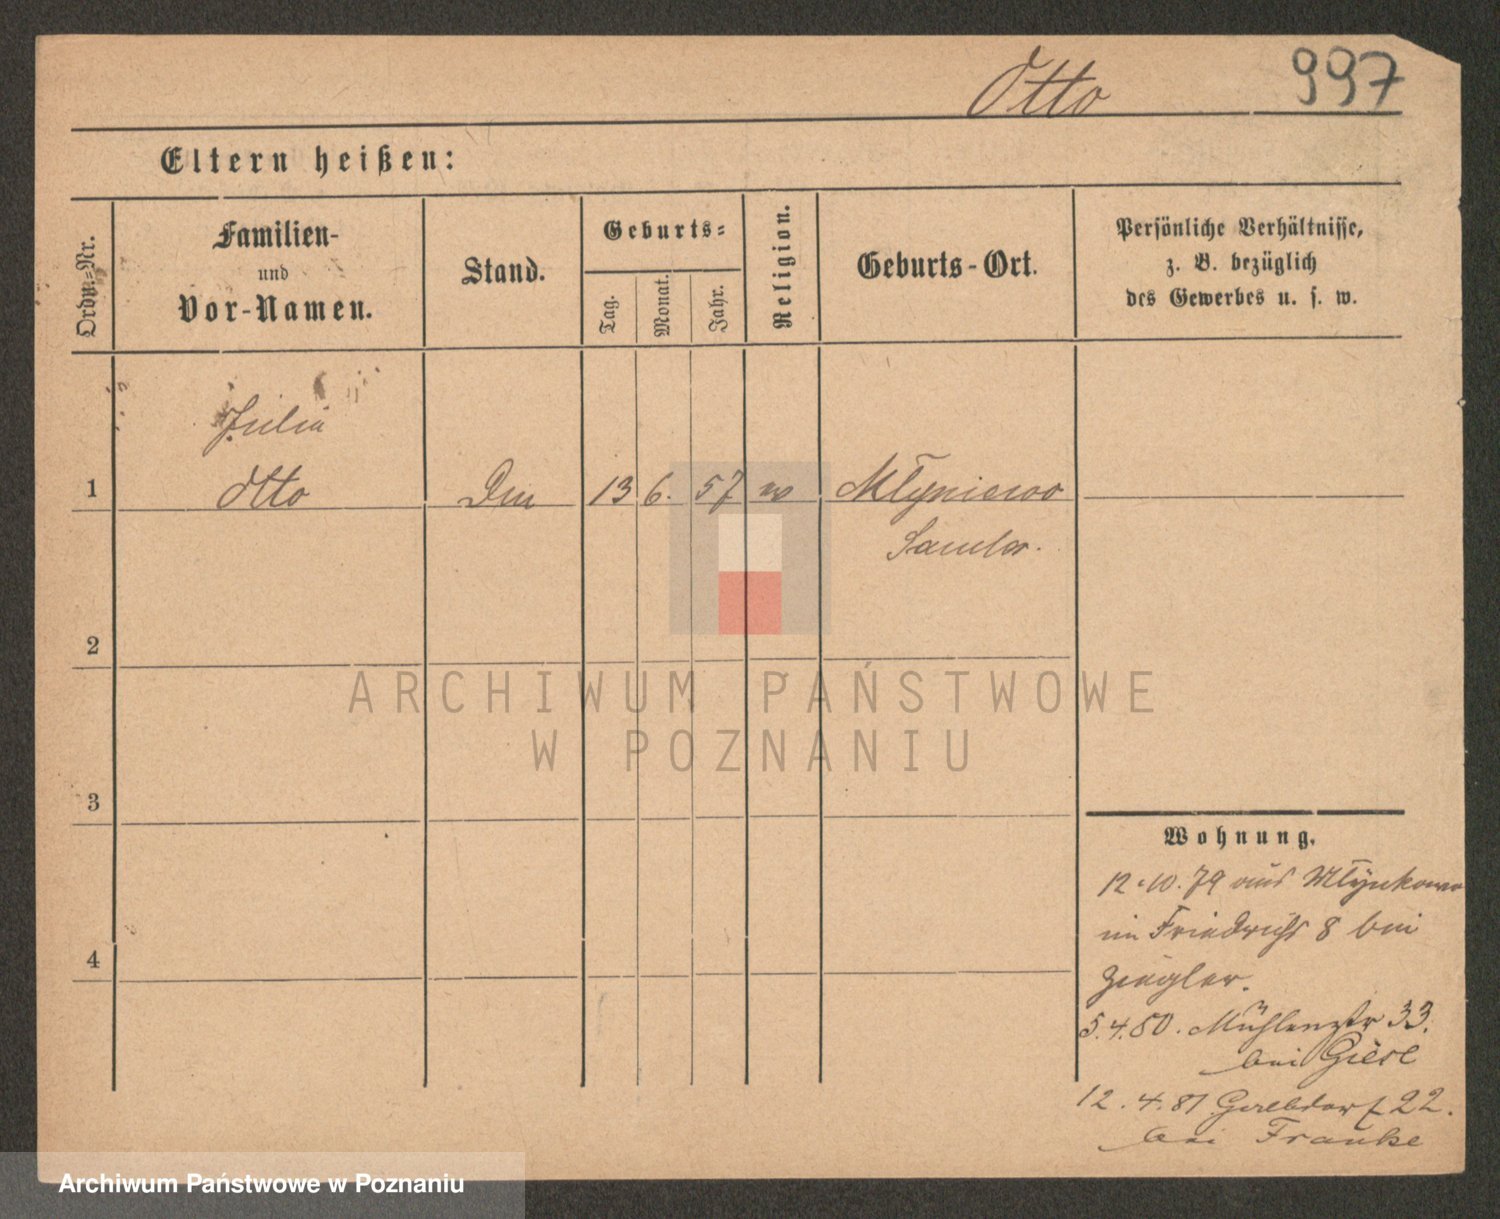 Otto 997
Eltern heißen:
Ordn.-Nr.
Familien-
und
Vor-Namen.
Stand.
Geburts-
Tag.
Monat.
Jahr.
Religion.
Geburts-Ort.
Persönliche Verhältnisse,
z. B. bezüglich
des Gewerbes u. s. w.
Julia
1 Otto 13 6. 57
Samter.
2
3
4
Wohnung.
12.10.79 aus Młynkowo
in Friedrichst 8 bei
Ziegler.
5.4.80. Mühlenstr 33.
bei
12.4.81 22.
bei Franke
ARCHIWUM PAŃSTWOWE
W POZNANIU
Archiwum Państwowe w Poznaniu